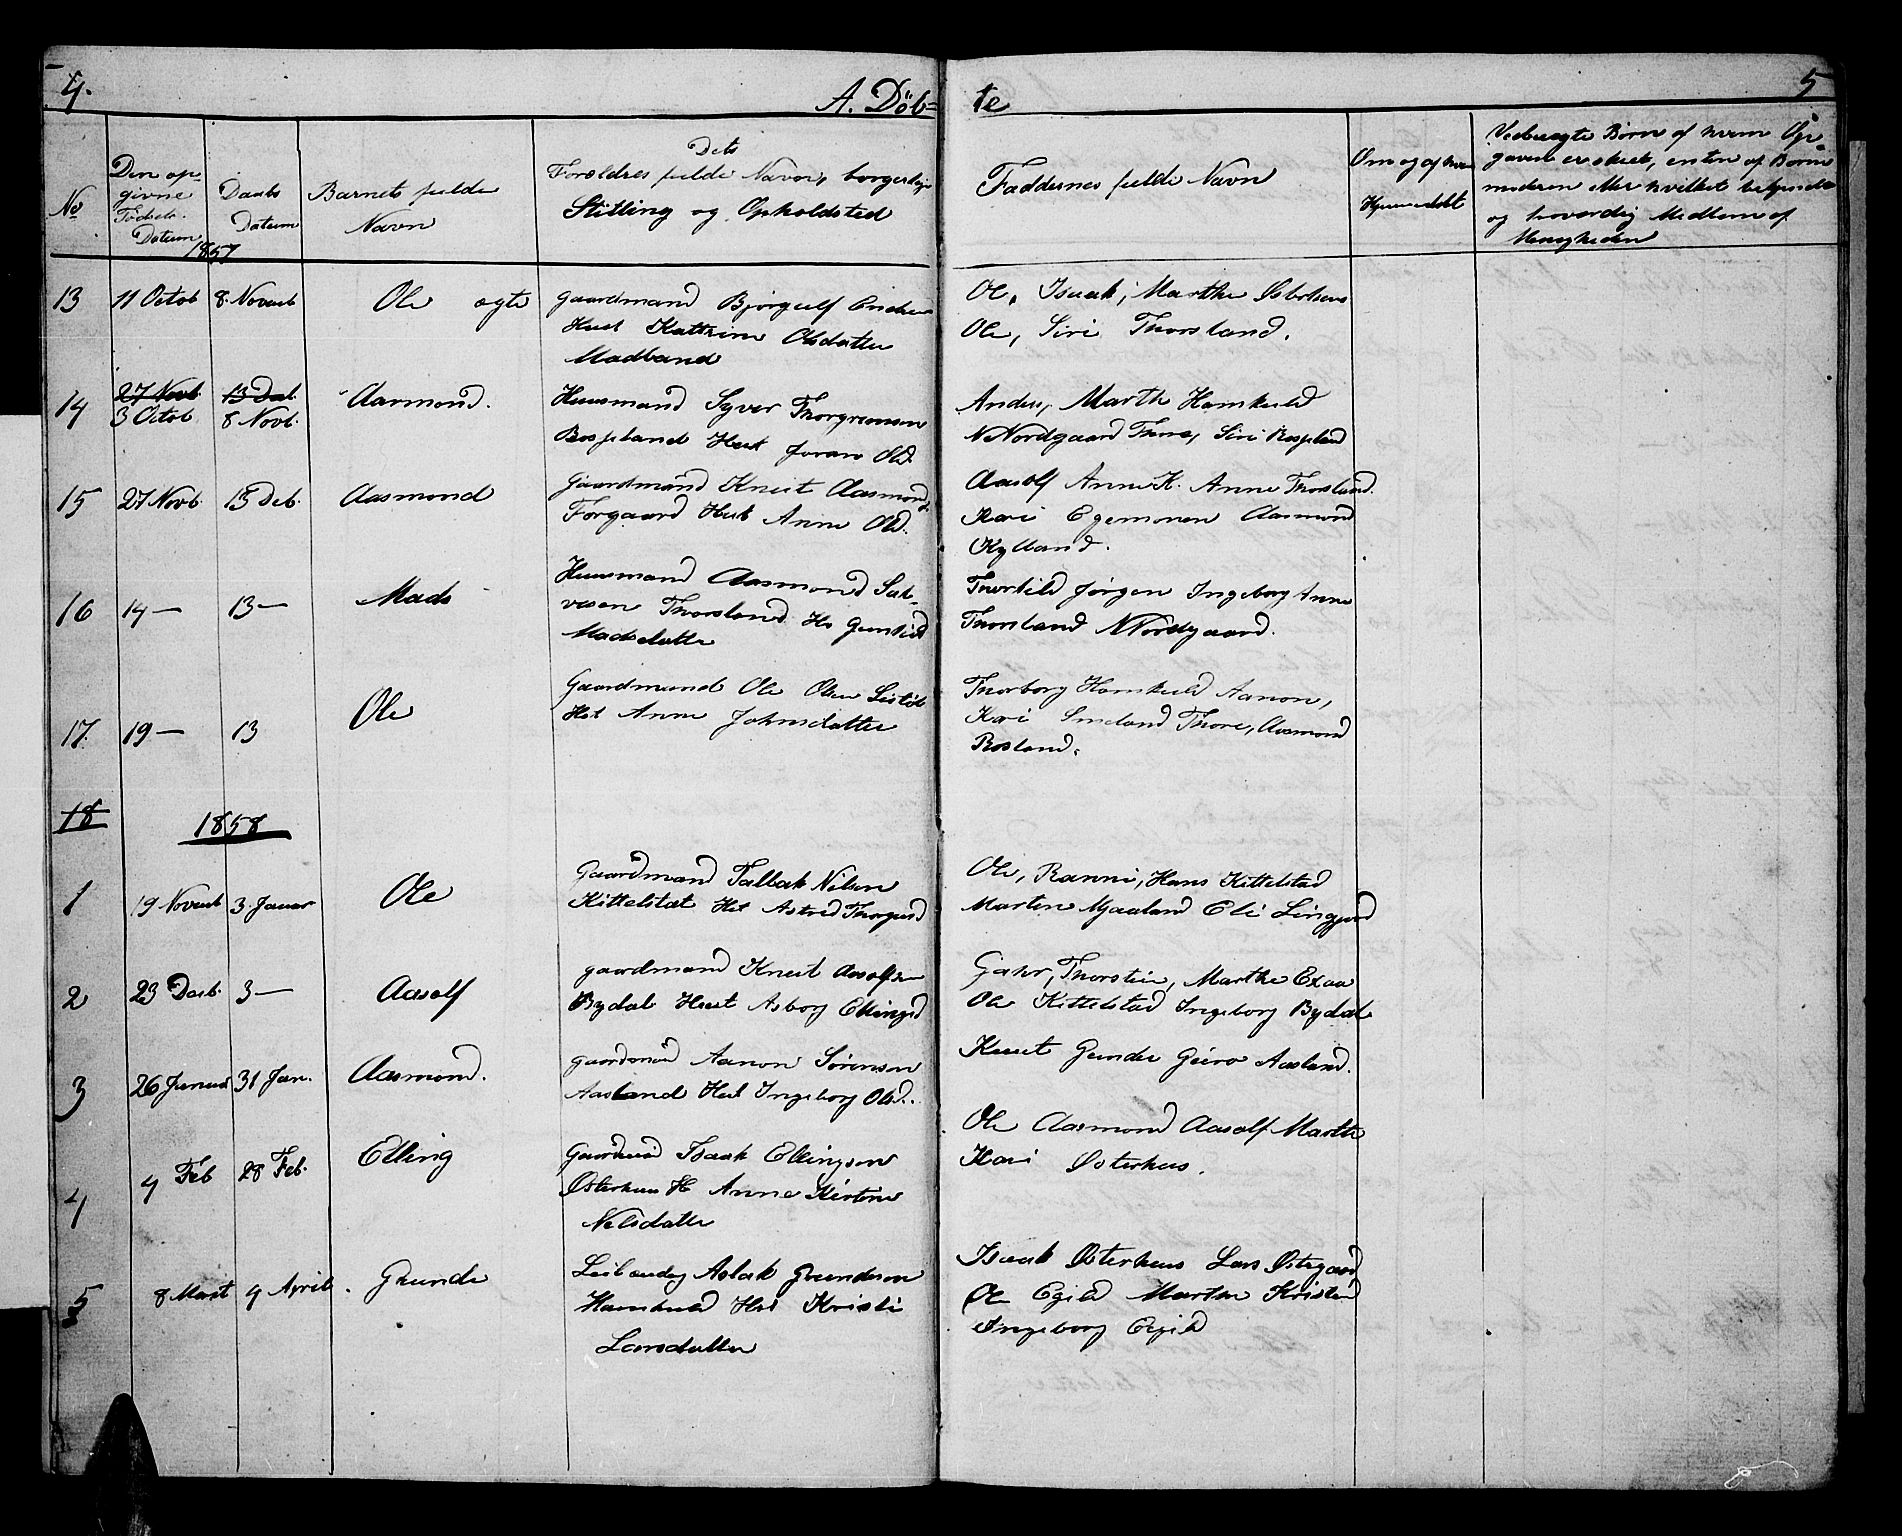 4.
A. Döb=
te
5
No
Den op-
givne
Födsels
Datum
1857
Daabs
Datum
Barnets fulde
Navn
Dets
Forældres fulde Navn, borgerlige
Stilling og Opholdsted
Faddernes fulde Navn
Om og af hvem
Hjemmedöbt
Uægte Børn af hvem Op-
gaven er skeet, enten af Barne
moderen eller hvilket
og Medlem af
Menigheden
13 11 Octob 8. Novemb Ole ægte gaardmand Bjørgulf
Hust Kathrine Olsdatter
Madland
Ole, Isaak, Marthe Østerhuus
Ole, Siri Thorsland.
14 27 Novb. 13 Deb.
3 Octob 8 Novb. Aasmond. Huusmand Syver Thorgrimsen
Rosseland Hust Joran Olsd.
Anders, Marthe Hamkold
N Nordgaard Thore, Siri Rosseland
15 27 Novb 13 Deb. Aasmond Gaardmand Knut Aasmonds.
Forgaard Hust Anne Olsd.
Aasolf Anne K. Anne Thorsland.
Kari Egemonen Aasmond
Kylland.
16 14 — 13 — Mads Huusmand Aasmond Sal-
vesen Thorsland Hs Gunhild
Madsdatter
Thorkild Jørgen Ingeborg Anne
Thorsland N Nordgaard.
17. 19 — 13 Ole Gaardmand Ole Olsen
Hst Anne Johnsdatter
Thorborg Hamkold Aanon,
Kari Smeland Thore, Aasmond
Rosland.
18
1858
1 19 Novemb 3. Januar Ole Gaardmand Tallak Nilsen
Kittelstat Hst Astrid Thorgusd
Ole, Ranni, Hans Kittelstad
Marten Mjaaland Eli Lingjord
2 23 Decb. 3 — Aasolf gaardmand Knut Aasolfsen
Bydal Hust Asborg Ellingsd
Gahr, Thorstein, Marthe Exaa
Ole Kittelstad Ingeborg Bydal
3 26 Januar 31 Jan. Aasmond. gaardmand Aanon Sørenson
Aasland Hst Ingeborg Olsd.
Knut Gunder Guro Aasland.
4 4 Feb 28 Feb. Elling Gaardmand Isaak Ellingson
Østerhuus H Anne Kirstine
Nelsdatter
Ole Aasmond Aasolf Marthe
Kari Østerhus.
5 8 Mart 4 April. Gunde Aslak Gunderson
Hamkold Hst Kristi
Larsdatter
Isaak Østerhuus Lars Østegaard
Ole Egild Marthe Kristend
Ingeborg Egild